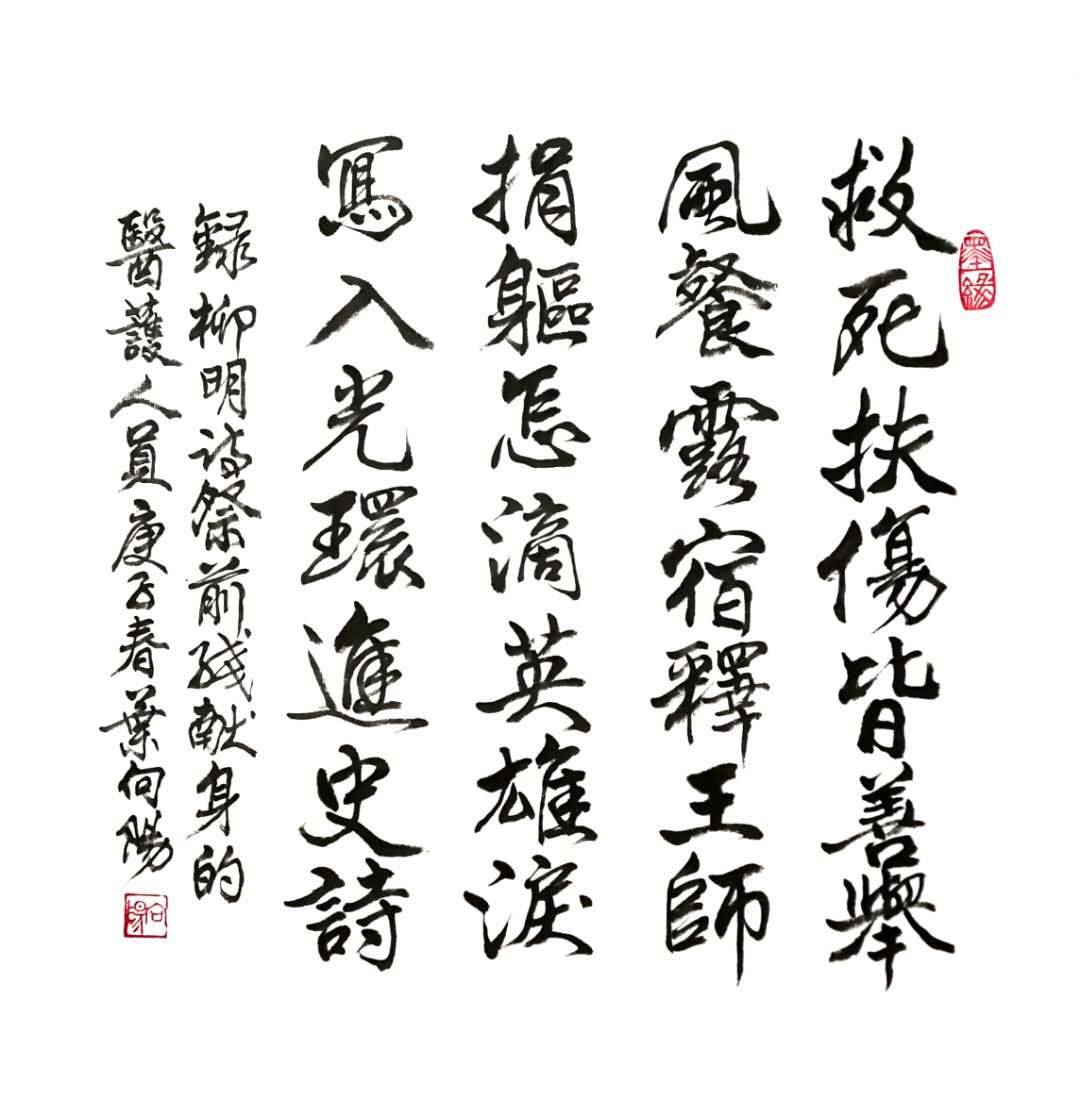 救死扶傷皆善舉
風餐露宿釋王師
捐軀怎滴英雄淚
寫入光環進史詩
録柳明詩祭前线献身的
醫護人員庚子春葉向陽
墨缘
向陽